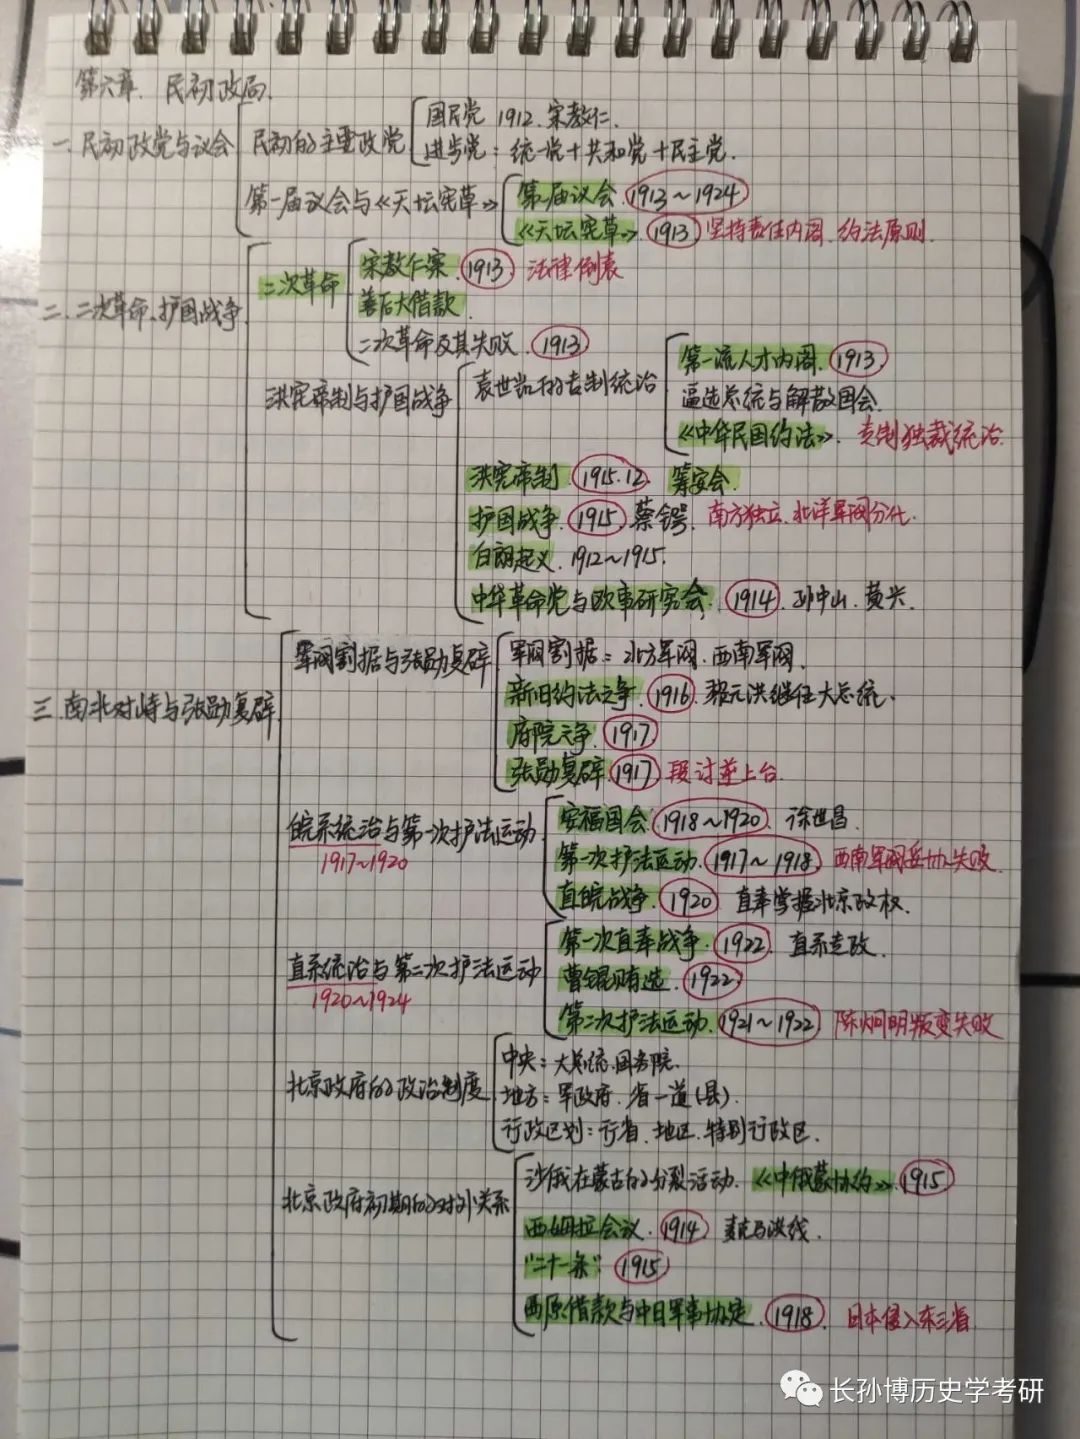 第六章. 民初政局.
一. 民初政党与议会
民初的主要政党
国民党 1912. 宋教仁.
进步党: 统一党+共和党+民主党.
第一届议会与《天坛宪草》
第一届议会. 1913~1924
《天坛宪草》. 1913 坚持责任内阁. 约法原则.
二. 二次革命、护国战争
二次革命
宋教仁案. 1913 法律倒袁
善后大借款.
二次革命及其失败. 1913
洪宪帝制与护国战争
袁世凯的专制统治
第一流人才内阁. 1913
逼选总统与解散国会.
《中华民国约法》. 专制独裁统治.
洪宪帝制. 1915.12. 筹安会.
护国战争. 1915. 蔡锷. 南方独立、北洋军阀分化.
白朗起义. 1912~1915.
中华革命党与欧事研究会. 1914. 孙中山. 黄兴.
三. 南北对峙与张勋复辟
军阀割据与张勋复辟
军阀割据: 北方军阀. 西南军阀.
新旧约法之争. 1916. 黎元洪继任大总统.
府院之争. 1917
张勋复辟. 1917 段讨逆上台.
皖系统治与第一次护法运动
1917~1920
安福国会. 1918~1920. 徐世昌.
第一次护法运动. 1917~1918. 西南军阀妥协失败.
直皖战争. 1920 直奉掌握北京政权.
直系统治与第二次护法运动
1920~1924
第一次直奉战争. 1922. 直系连政.
曹锟贿选. 1922.
第二次护法运动. 1921~1922 陈炯明叛变失败
北京政府的政治制度
中央: 大总统. 国务院.
地方: 军政府. 省—道(县).
行政区划: 行省. 地区. 特别行政区.
北京政府初期的对外关系
沙俄在蒙古的分裂活动. 《中俄蒙协约》. 1915
西姆拉会议. 1914 麦克马洪线.
"二十一条". 1915
西原借款与中日军事协定. 1918. 日本侵入东三省.
长孙博历史学考研